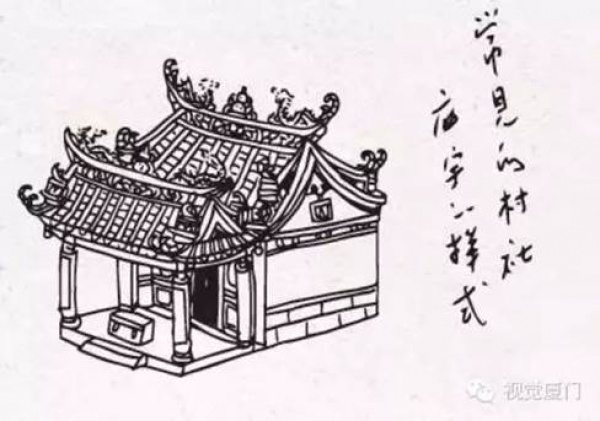 常见的村社
庙宇的样式
视觉厦门